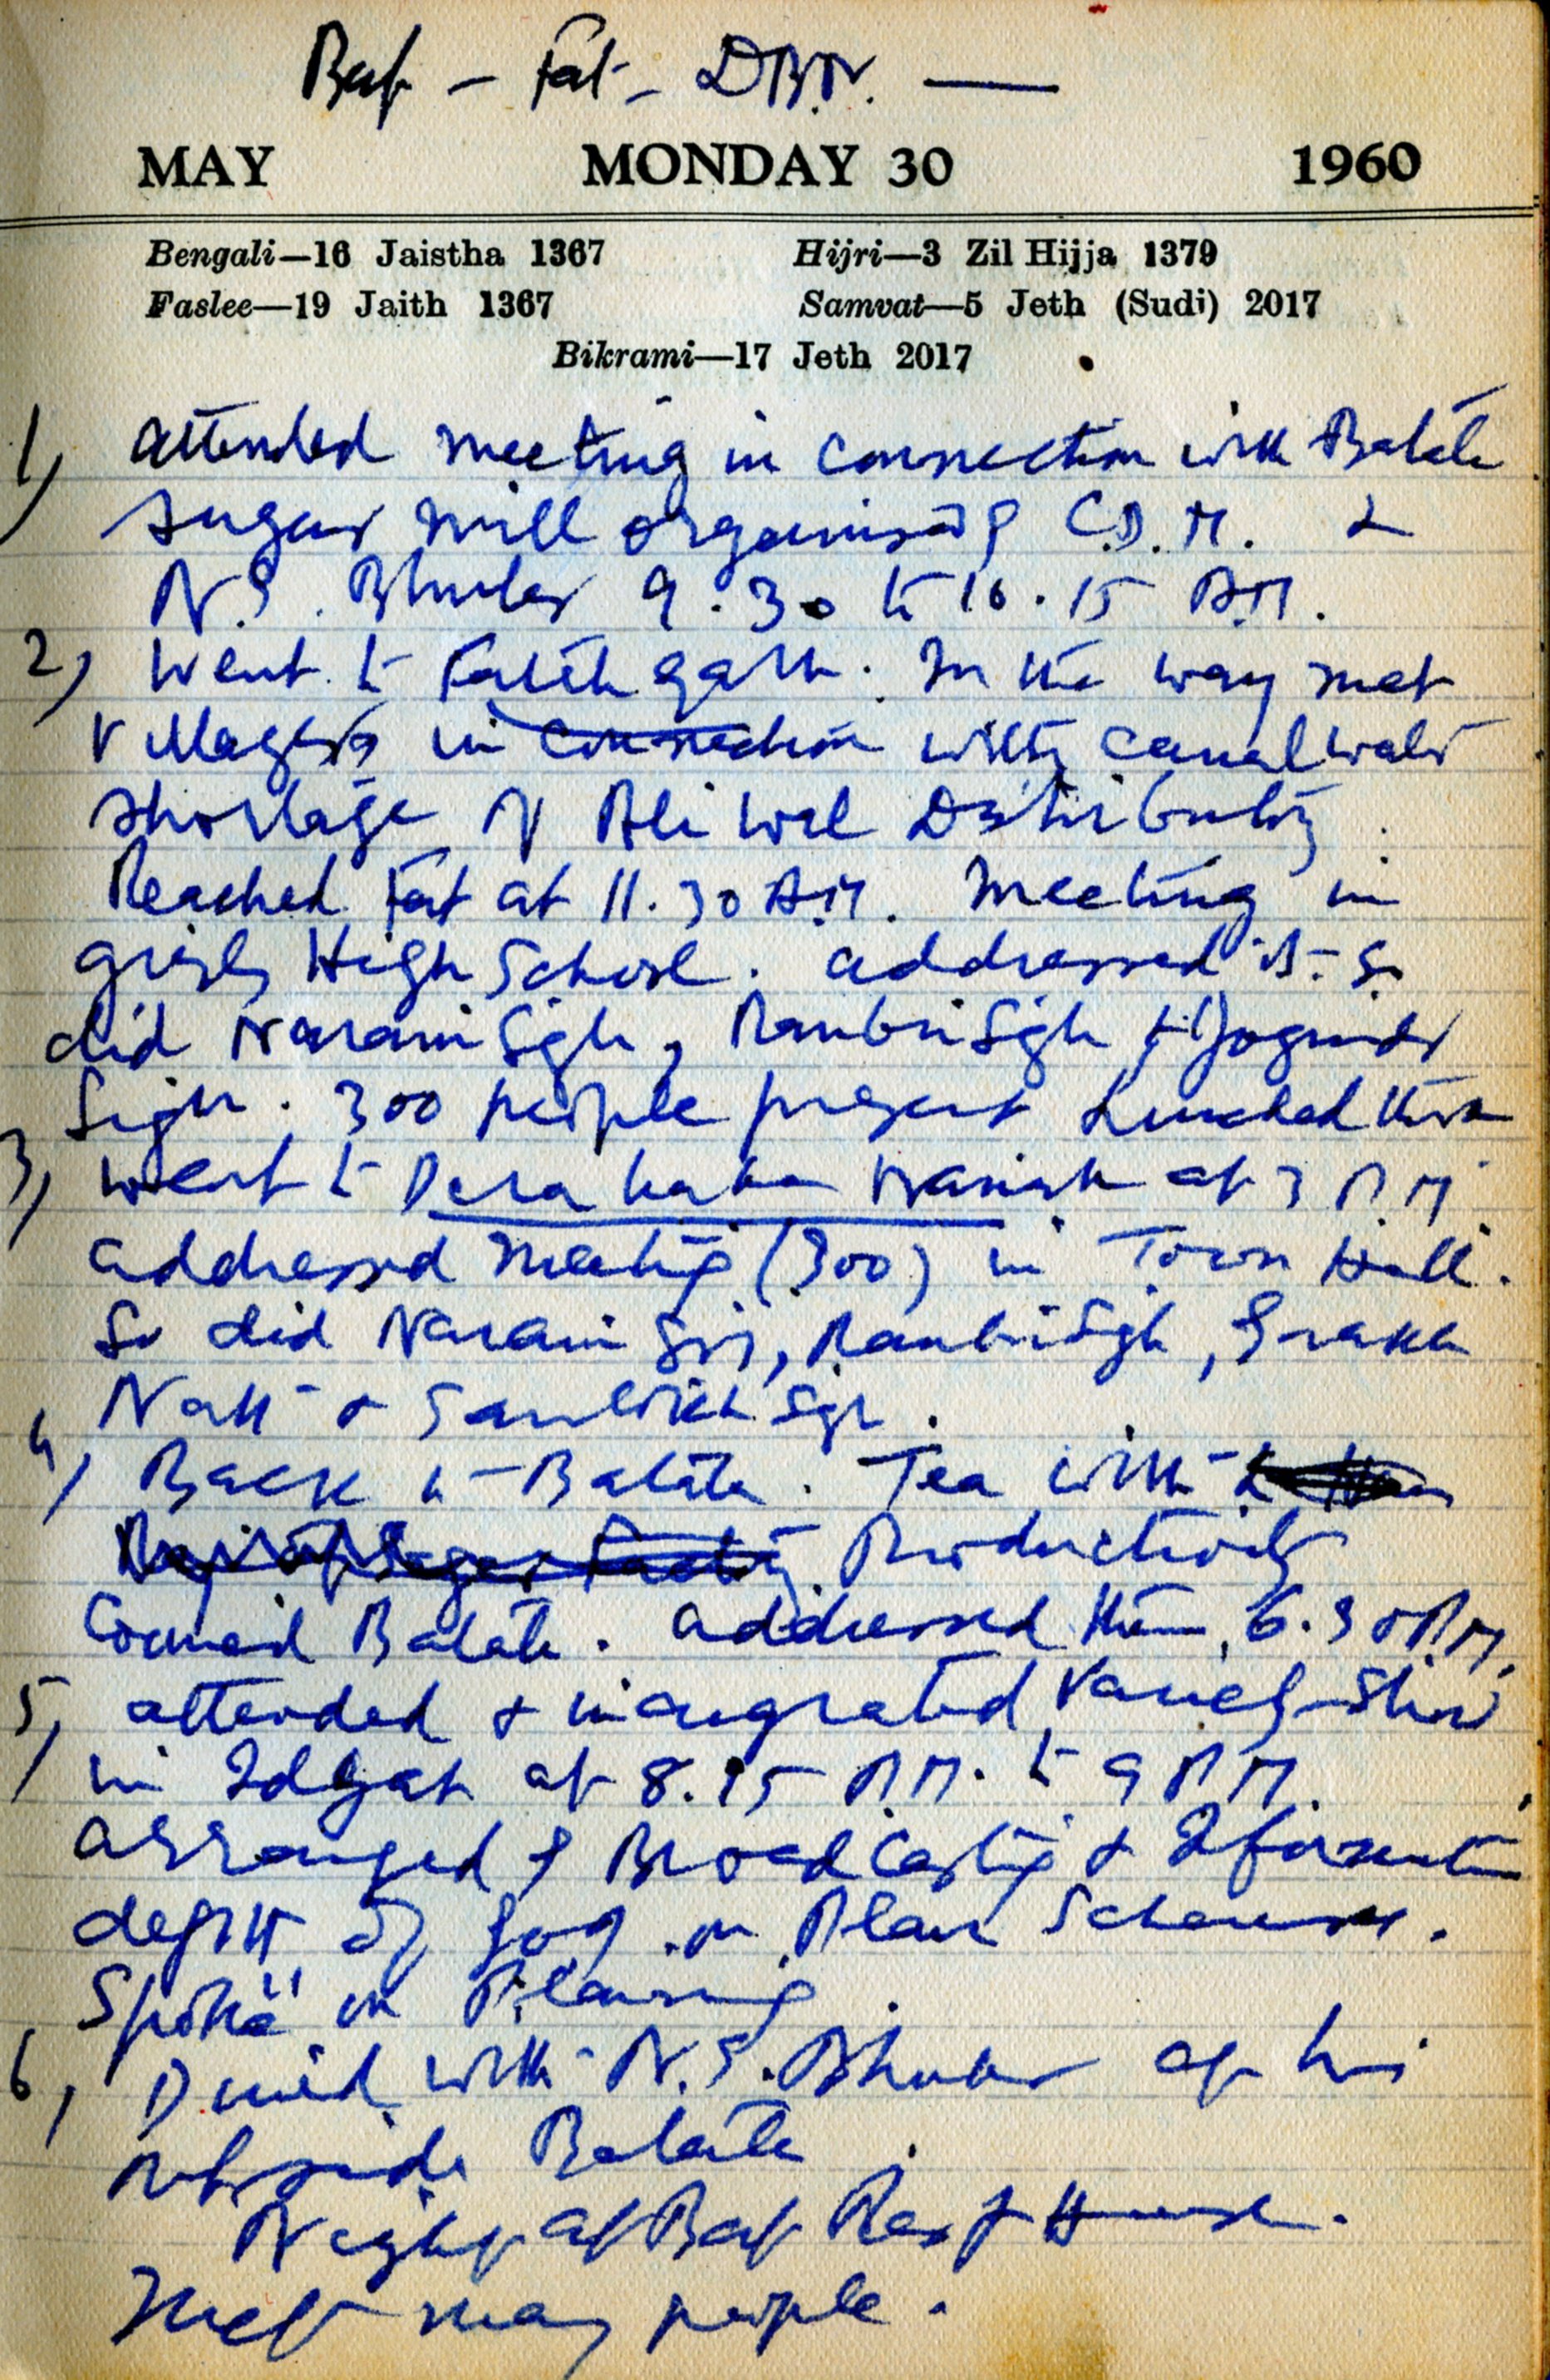 Bat - Fat - D.B.N. —
MAY MONDAY 30 1960
Bengali—16 Jaistha 1367 Hijri—3 Zil Hijja 1379
Faslee—19 Jaith 1367 Samvat—5 Jeth (Sudi) 2017
Bikrami—17 Jeth 2017
1) attended meeting in connection with Batala
Sugar Mill organising C.D.M. &
N.S. 9.30 to 10.15 A.M.
2) Went to Fateh garh. In the way met
Villagers in connection with canal water
shortage of Aliwal Distributry.
Reached Fat at 11.30 A.M. Meeting in
girls High School. addressed it. So
did Narain Sgh, Ranbir Sgh & Joginder
Sigh. 300 people present Lunched there
3) went to Dera baba Nanak at 3 P.M.
addressed meeting (300) in Town Hall.
So did Narain Sgh, Ranbir Sgh,
Nath & Sgh.
4) Back to Batala. Tea with
Productivity
Council Batala. addressed them. 6.30 P.M.
5) attended & inaugrated Variety-Show
in Idgah at 8.15 P.M. to 9 P.M.
arranged by Broadcasting & Information
deptt of Gov on Plan Schemes.
Spoke on Planning.
6) Dined with N.S. at his
reside Batala.
Night at Bat Rest House.
Met many people.